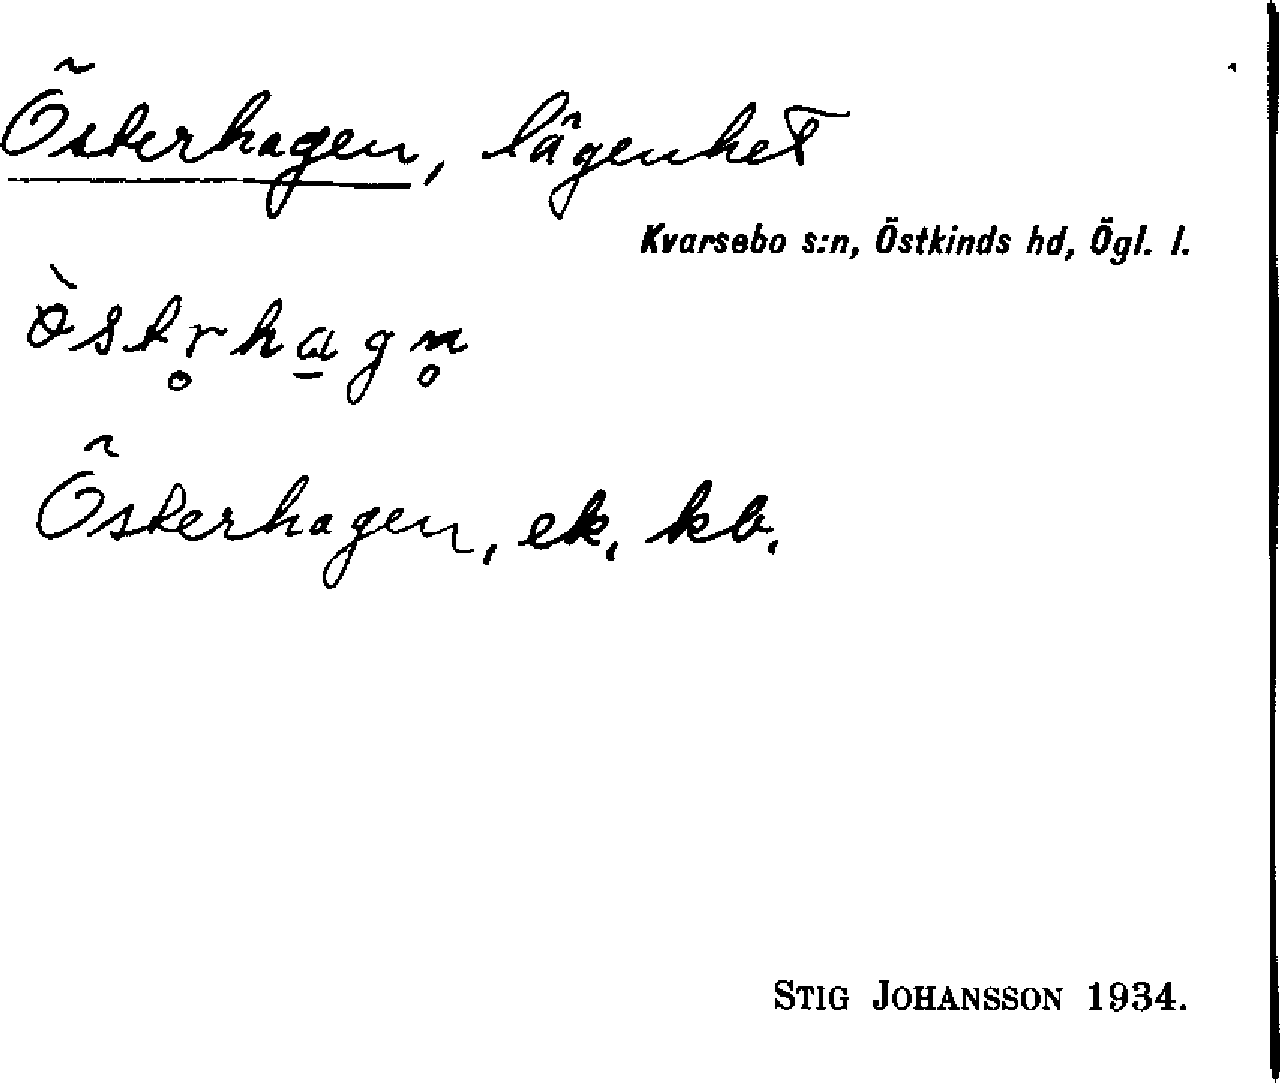 Österhagen, lägenhet
Kvarsebo s:n, Östkinds hd, Ögl. l.
ö̀str̥ha̲gn̥
Österhagen, ek, kb.
STIG JOHANSSON 1934.